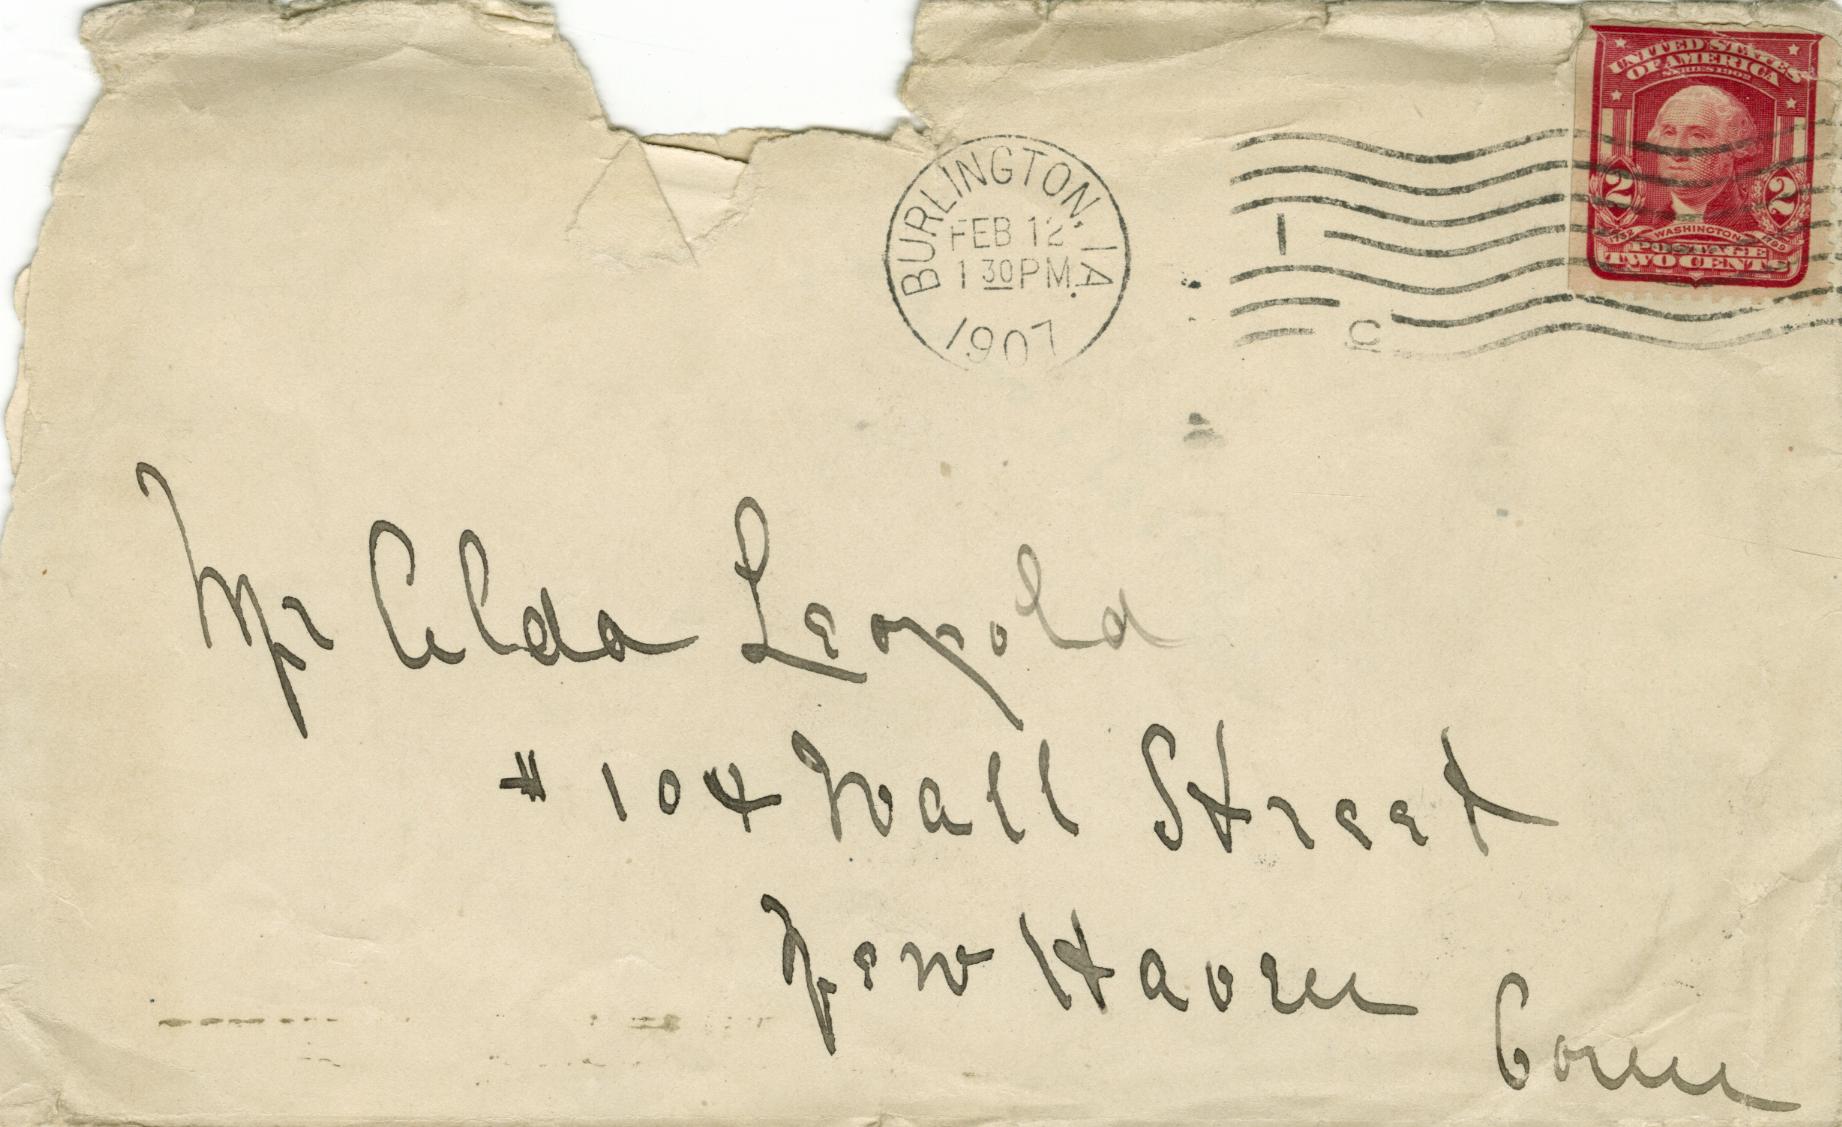 BURLINGTON, IA.
FEB 12
1 30 PM
1907
1
C
UNITED STATES
OF AMERICA
SERIES 1902
2 2
1732 WASHINGTON 1799
POSTAGE
TWO CENTS
Mr Aldo Leopold
# 104 Wall Street
New Haven
Conn